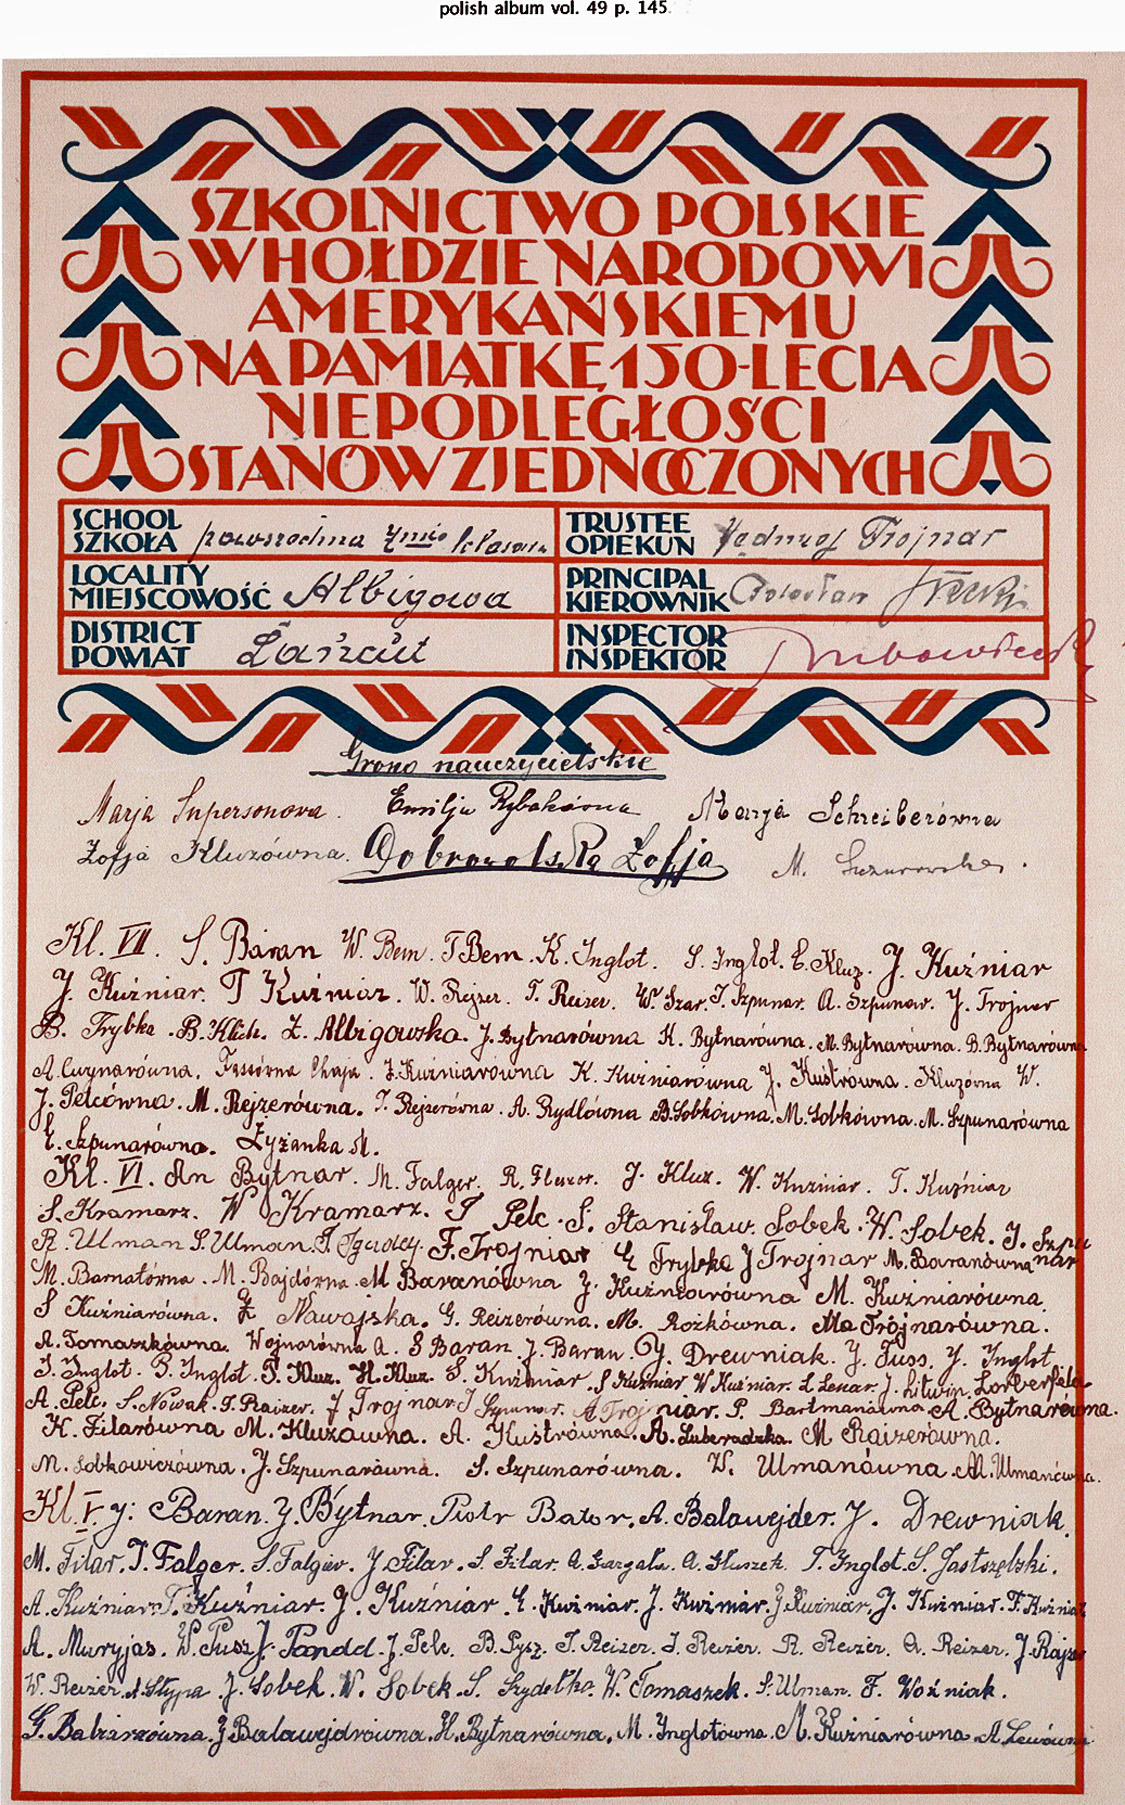 polish album vol. 49 p. 145
SZKOLNICTWO POLSKIE
W HOŁDZIE NARODOWI
AMERYKAŃSKIEMU
NA PAMIĄTKĘ 150-LECIA
NIEPODLEGŁOŚCI
STANÓW ZJEDNOCZONYCH
SCHOOL
SZKOŁA powszechna 7mio klasowa
TRUSTEE
OPIEKUN Jędrzej Trojnar
LOCALITY
MIEJSCOWOŚĆ Albigowa
PRINCIPAL
KIEROWNIK
DISTRICT
POWIAT Łańcut
INSPECTOR
INSPEKTOR
Grono nauczycielskie
Marja Supersonowa. Emilja Rybakówna Marja Schreiberówna
Zofja Kluzówna. Dobrowolska Zofja M.
Kl. VII. S. Baran W. Bem. T Bem. K. Inglot. S. Inglot. E. Kluz. J. Kuźniar
J. Kuźniar. T Kuźniar. W. Rejzer. T. Reiser. W. Szar. T. Szpunar. A. Szpunar. J. Trojnar
B. Trybka. B. Klich. Z. Albigowska. J. Bytnarówna K. Bytnarówna. M. Bytnarówna. B. Bytnarówna
A. Cwynarówna. Fassówna Chaja. J. Kuźniarówna K. Kuźniarówna J. Kustrówna. Kluzówna W.
J. Pelcówna. M. Rejzerówna. J. Rejzerówna. A. Rydlówna B. Sobkówna. M. Sobkówna. M. Szpunarówna
E. Szpunarówna. Zyzanka St.
Kl. VI. An Bytnar. M. Falger. R. Fluxor. J. Kluz. W. Kuźniar. T. Kuźniar
S. Kramarz. W Kramarz. J Pelc. S. Stanisław. Sobek. W. Sobek. J. Szpu
nar
R. Ulman S. Ulman. F. Trojniar E Trybka J Trojnar M. Baranówna
M. Barnatówna. M. Bajdówna. M Baranówna J. Kuźniarówna M. Kuźniarówna.
S Kuźniarówna. Z Nawojska. G. Reizerówna. M. Rożkówna. Ma Trojnarówna.
A. Tomaszkówna. Wojnarówna A. S Baran. J. Baran. J. Drewniak. J. Fuss. J. Inglot
J. Inglot. B. Inglot. T. Kluz. H. Kluz. S. Kuźniar. S Kuźniar W Kuźniar. L Lenar. J. Litwin. Lorberfeld
A. Pelc. S. Nowak. T. Raizer. J Trojnar J Szpunar. A Trojniar. P. Bartmanówna. A. Bytnarówna.
K. Filarówna M. Kluzówna. A. Kustrówna. A. Luberadzka. M Raizerówna.
M. Sobkowiczówna. J. Szpunarówna. S. Szpunarówna. W. Ulmanówna. M. Ulmanówna.
Kl. V. J. Baran. J. Bytnar. Piotr Bator. A. Balawejder. J. Drewniak.
M. Filar. J. Falger. S. Falger. J. Filar. S. Filar. A. Gargała. A. Głuszek. T. Inglot. S. Jastrzębski.
A. Kuźniar. T. Kuźniar. J. Kuźniar. E. Kuźniar. J. Kuźniar. J. Kuźniar. J. Kuźniar. F. Kuźniar
A. Muryjas. W. Pusz. J. Pondd. J. Pelc. B. Pysz. J. Reizer. J. Reizer. R. Reizer. A. Reizer. J. Rajze
W. Reizer. A. Stypa. J. Sobek. W. Sobek. S. Szydełko. W. Tomaszek. S. Ulman. F. Woźniak.
G. Balzarzówna. J Balawejdrówna. H. Bytnarówna. M. Inglotówna. M. Kuźniarówna. A. Lewówna